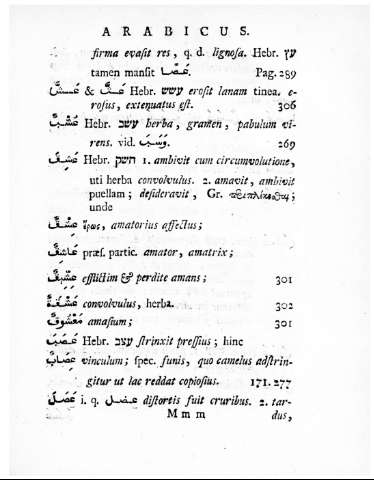 ARABICUS.
firma evasit res, q. d. lignosa. Hebr. עץ
tamen mansit عَصًا. Pag. 289
عَشَّ & عَثَّ Hebr. עשש erosit lanam tinea. e-
rosus, extenuatus est. 306
عُشْبٌ Hebr. עשב herba, gramen, pabulum vi-
rens. vid. وَسَبَ. 269
عَشِقَ Hebr. חשק 1. ambivit cum circumvolutione,
uti herba convolvulus. 2. amavit, ambivit
puellam; desideravit, Gr.
unde
عِشْقٌ ἔρως, amatorius affectus;
عَاشِقٌ præf. partic. amator, amatrix;
عِشِّيقٌ efflictim & perdite amans; 301
عَشَقَةٌ convolvulus, herba. 302
مَعْشُوقٌ amasium; 301
عَصَبَ Hebr. עצב strinxit pressius; hinc
عِصَابٌ vinculum; spec. funis, quo camelus adstrin-
gitur ut lac reddat copiosius. 171. 277
عَصَلَ i. q. عضل distortis fuit cruribus. 2. tar-
Mmm dus,